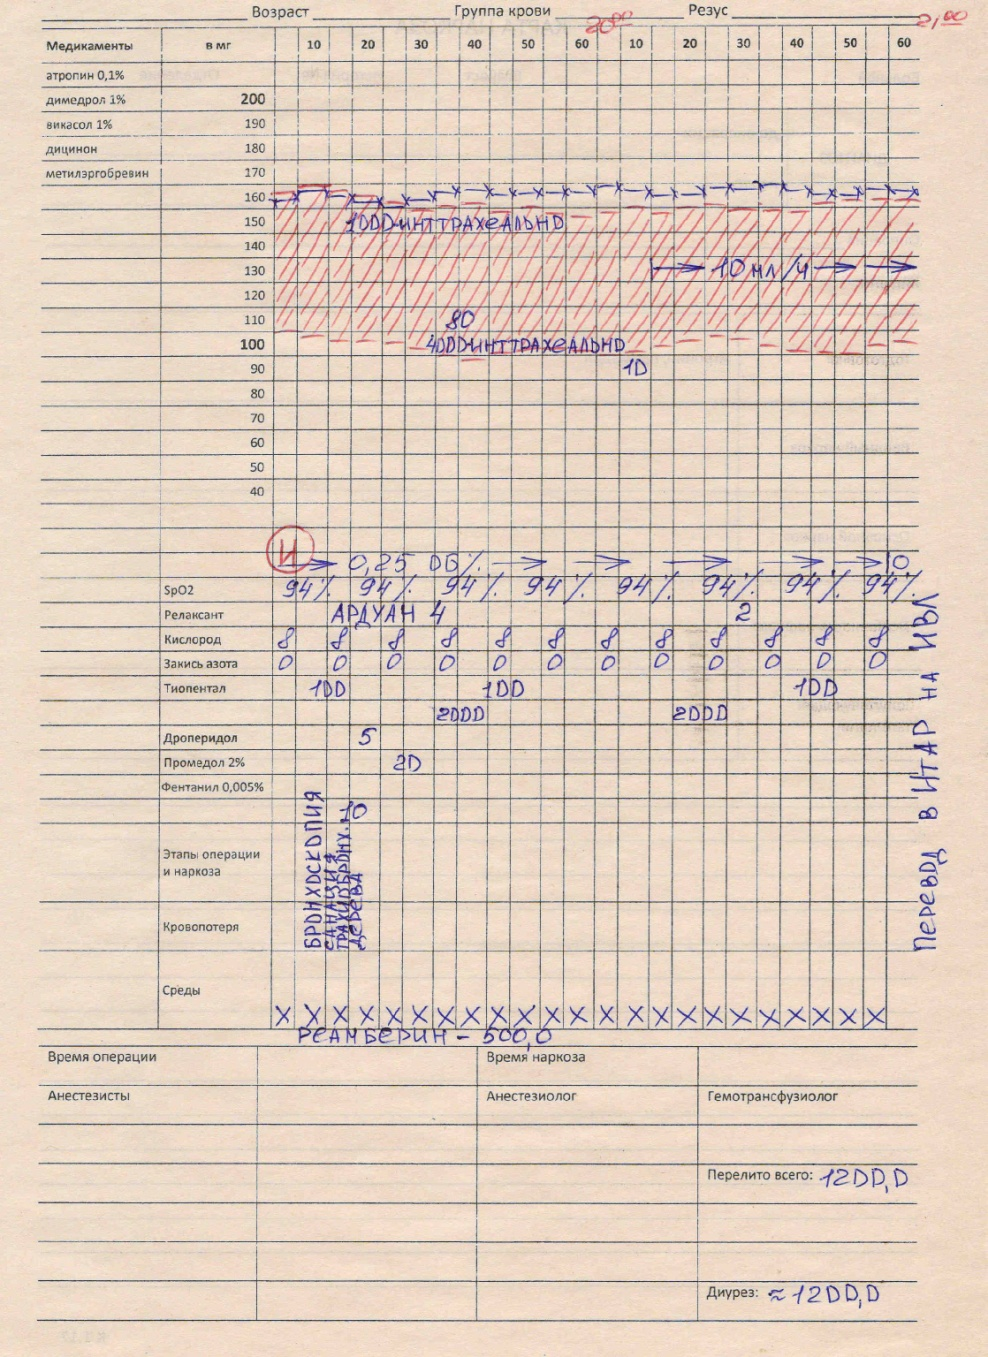 Возраст Группа крови 20⁰⁰ Резус 21,⁰⁰
Медикаменты в мг 10 20 30 40 50 60 10 20 30 40 50 60
атропин 0,1%
димедрол 1% 200
викасол 1% 190
дицинон 180
метилэргобревин 170
160
150 1000-ИНТТРАХЕАЛЬНО
140
130 10 мл/ч
120
110 80
100 4000-ИНТТРАХЕАЛЬНО
90 10
80
70
60
50
40
И
0,25 ОБ% 0
SpO2 94% 94% 94% 94% 94% 94% 94% 94%
Релаксант АРДУАН 4 2
Кислород 8 8 8 8 8 8 8 8 8 8 8 8
Закись азота 0 0 0 0 0 0 0 0 0 0 0 0
Тиопентал 100 100 100
2000 2000
Дроперидол 5
Промедол 2% 20
Фентанил 0,005%
10
Этапы операции
и наркоза
БРОНХОСКОПИЯ
САНАЦИЯ
ТРАХИОБРОНХ.
ДЕРЕВА
Кровопотеря
Среды
X X X X X X X X X X X X X X X X X X X X X X X
РЕАМБЕРИН - 500,0
ПЕРЕВОД В ИТАР НА ИВЛ
Время операции Время наркоза
Анестезисты Анестезиолог Гемотрансфузиолог
Перелито всего: 1200,0
Диурез: ≈1200,0